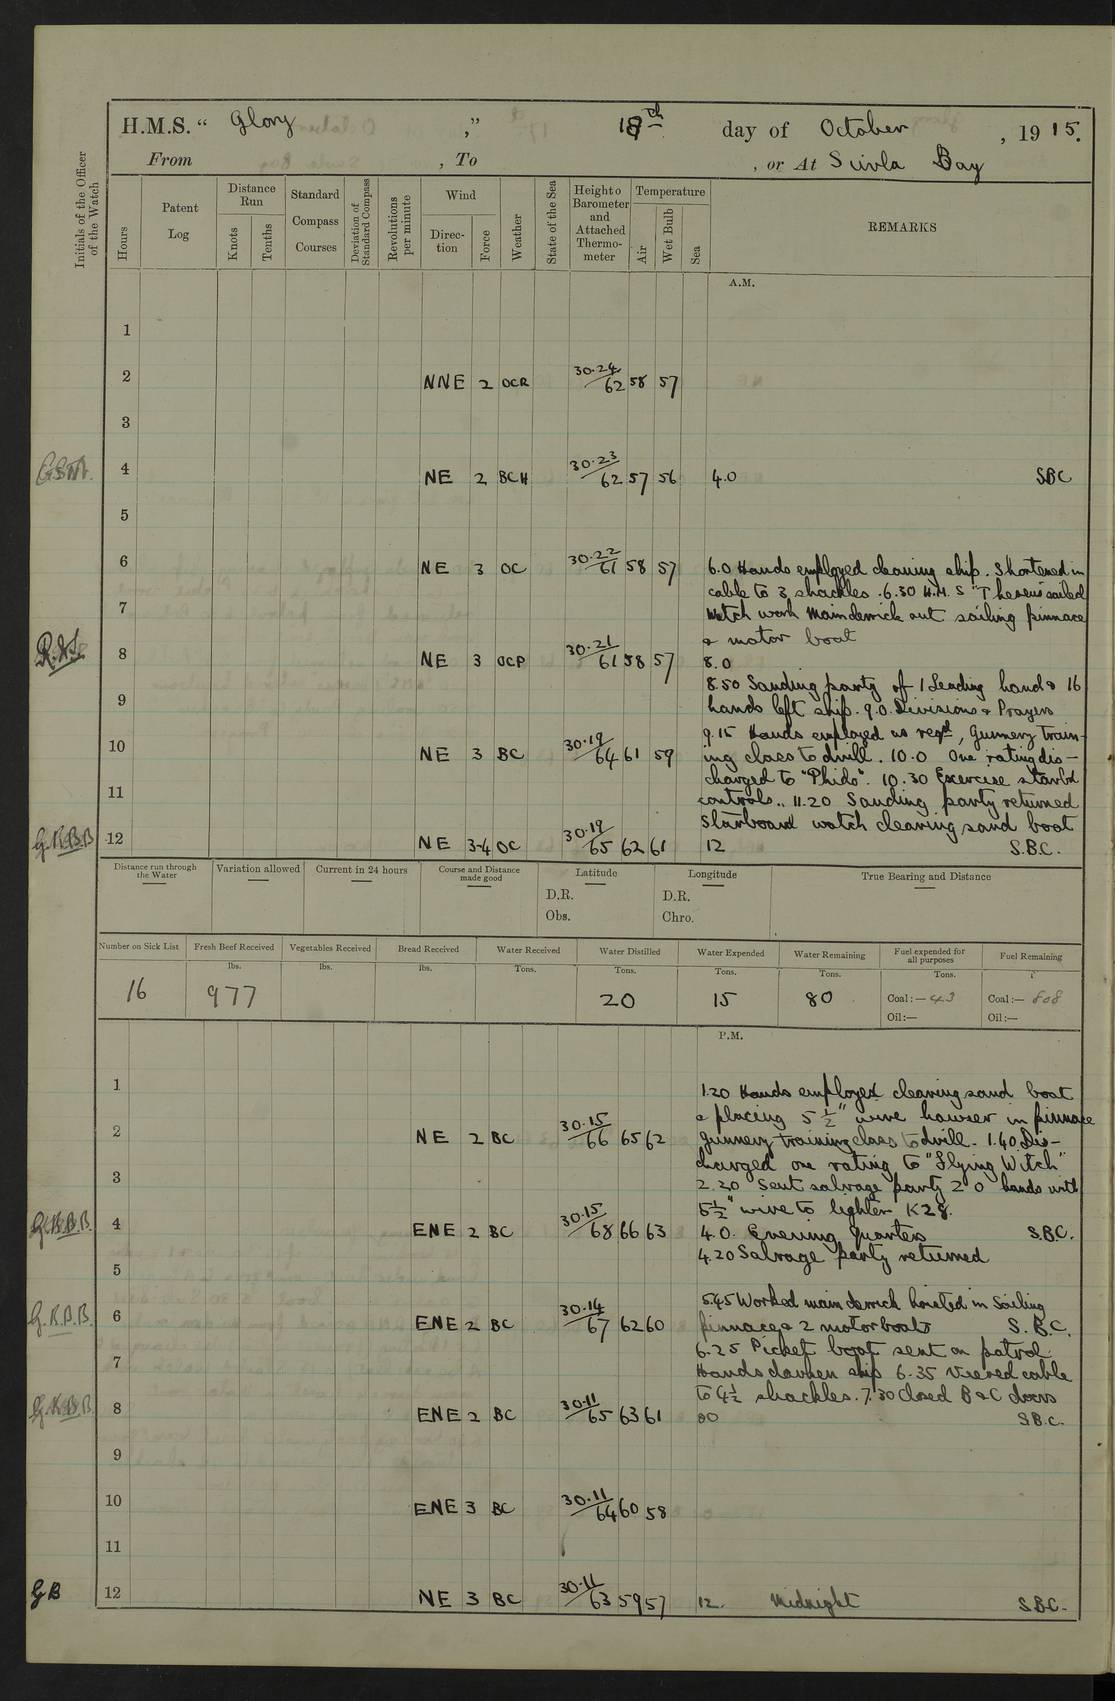 H.M.S. “ Glory ,” 18th day of October , 1915.
From , To , or At Suvla Bay
Initials of the Officer of the Watch
Hours
Patent Log
Distance Run
Knots
Tenths
Standard Compass Courses
Deviation of Standard Compass
Revolutions per minute
Wind
Direction
Force
Weather
State of the Sea
Height o Barometer and Attached Thermometer
Temperature
Air
Wet Bulb
Sea
REMARKS
A.M.
1
2 NNE 2 OCR 30.24/62 58 57
3
4 NE 2 BCH 30.23/62 57 56 4.0 SBC
5
6 NE 3 OC 30.22/61 58 57 6.0 Hands employed cleaning ship. Shortened in
cable to 3 shackles. 6.30 H.M.S "Theseus" sailed
7 Watch work Mainderrick out sailing pinnace
& motor boat
8 NE 3 OCP 30.21/61 58 57 8.0
8.50 Sanding party of 1 Leading hand & 16
9 hands left ship. 9.0. Divisions & Prayers
9.15 Hands employed as reqd, Gunnery Train-
10 NE 3 BC 30.19/64 61 59 ing class to drill. 10.0 One rating dis-
charged to "Phido". 10.30 Exercise starbd
11 controls.. 11.20 Sanding party returned
Starboard watch clearing sand boat
G.K.B.B 12 NE 3-4 OC 30.19/65 62 61 12 S.B.C.
Distance run through the Water
Variation allowed
Current in 24 hours
Course and Distance made good
Latitude
D.R.
Obs.
Longitude
D.R.
Chro.
True Bearing and Distance
Number on Sick List
Fresh Beef Received
Vegetables Received
Bread Received
Water Received
Water Distilled
Water Expended
Water Remaining
Fuel expended for all purposes
Fuel Remaining
lbs. lbs. lbs. Tons. Tons. Tons. Tons. Tons.
16 977 20 15 80 Coal:— 43 Coal:— 808
Oil:— Oil:—
P.M.
1 1.20 Hands employed clearing sand boat
& placing 5 1/2" wire hawser in pinnace
2 NE 2 BC 30.15/66 65 62 Gunnery training class to drill. 1.40 Dis-
charged one rating to "Flying Witch"
3 2.20 Sent salvage party 20 hands with
5 1/2" wire to lighter K28.
G.K.B.B. 4 ENE 2 BC 30.15/68 66 63 4.0. Evening Quarters S.B.C.
4.20 Salvage party returned
5
5.45 Worked main derrick hoisted in Sailing
G.K.B.B. 6 ENE 2 BC 30.14/67 62 60 pinnace & 2 motorboats S.B.C.
6.25 Picket boat sent on patrol
7 Hands darken ship 6.35 Veered cable
to 4 1/2 shackles. 7.30 Closed B & C doors
G.K.B.B. 8 ENE 2 BC 30.11/65 63 61 80 S.B.C.
9
10 ENE 3 BC 30.11/64 60 58
11
GB 12 NE 3 BC 30.11/63 59 57 12. Midnight S.B.C.